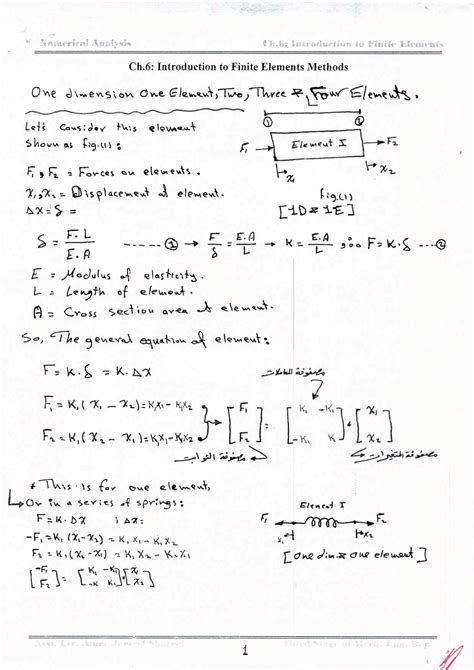 Numerical Analysis Ch.6: Introduction to Finite Elements
Ch.6: Introduction to Finite Elements Methods
One dimension one Element, Two, Three &, Four Elements.
Let's Consider this element
Shown as fig.(1):
① ②
F₁ → Element I → F₂
x₁ x₂
F₁, F₂ = Forces on elements.
x₁, x₂ = Displacement of element.
Δx = δ =
fig.(1)
[1D & 1E]
δ = F.L / E.A ------ ① → F/δ = E.A/L → K = E.A/L , ∴ F = K.δ --- ②
E = Modulus of elasticity.
L = Length of element.
A = Cross section area of element.
So, The general equation of element:
F = K.δ = K.Δx
مصفوفة المعاملات
F₁ = K₁(x₁ - x₂) = K₁x₁ - K₁x₂
F₂ = K₁(x₂ - x₁) = K₁x₂ - K₁x₁
[F₁ F₂] = [K₁ -K₁ -K₁ K] * [x₁ x₂]
مصفوفة الثوابت مصفوفة المتغيرات
* This is for one element,
Or in a series of springs:
F = K.Δx ; Δx:
-F₁ = K₁(x₁-x₂) = K₁x₁ - K₁x₂
F₂ = K₁(x₂-x₁) = K₁x₂ - K₁x₁
[-F₁ F₂] = [K₁ -K₁ -K K₁] . [x₁ x₂]
Element I
F₁ F₂
x₁ x₂
[One dim & one element]
1